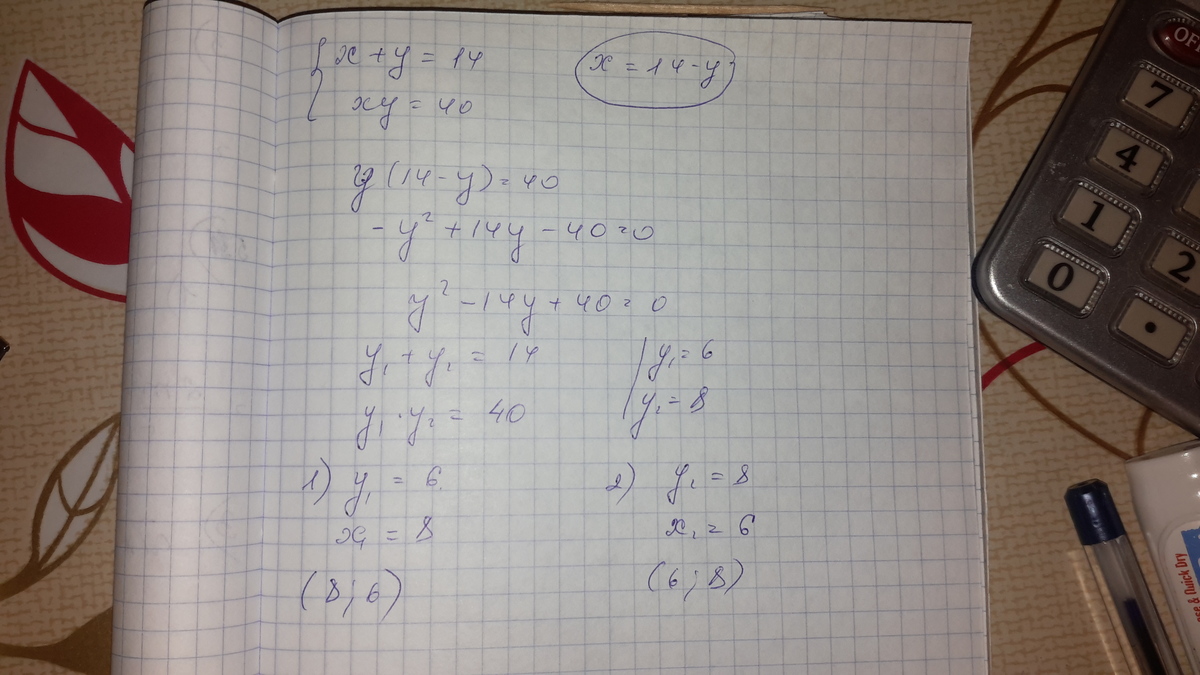 x + y = 14
xy = 40
x = 14 - y
y (14 - y) = 40
- y² + 14y - 40 = 0
y² - 14y + 40 = 0
y₁ + y₂ = 14
y₁ · y₂ = 40
y₁ = 6
y₂ = 8
1) y₁ = 6
x₁ = 8
(8; 6)
2) y₂ = 8
x₂ = 6
(6; 8)
OFF
7
4
1
0
2
.
& Quick Dry